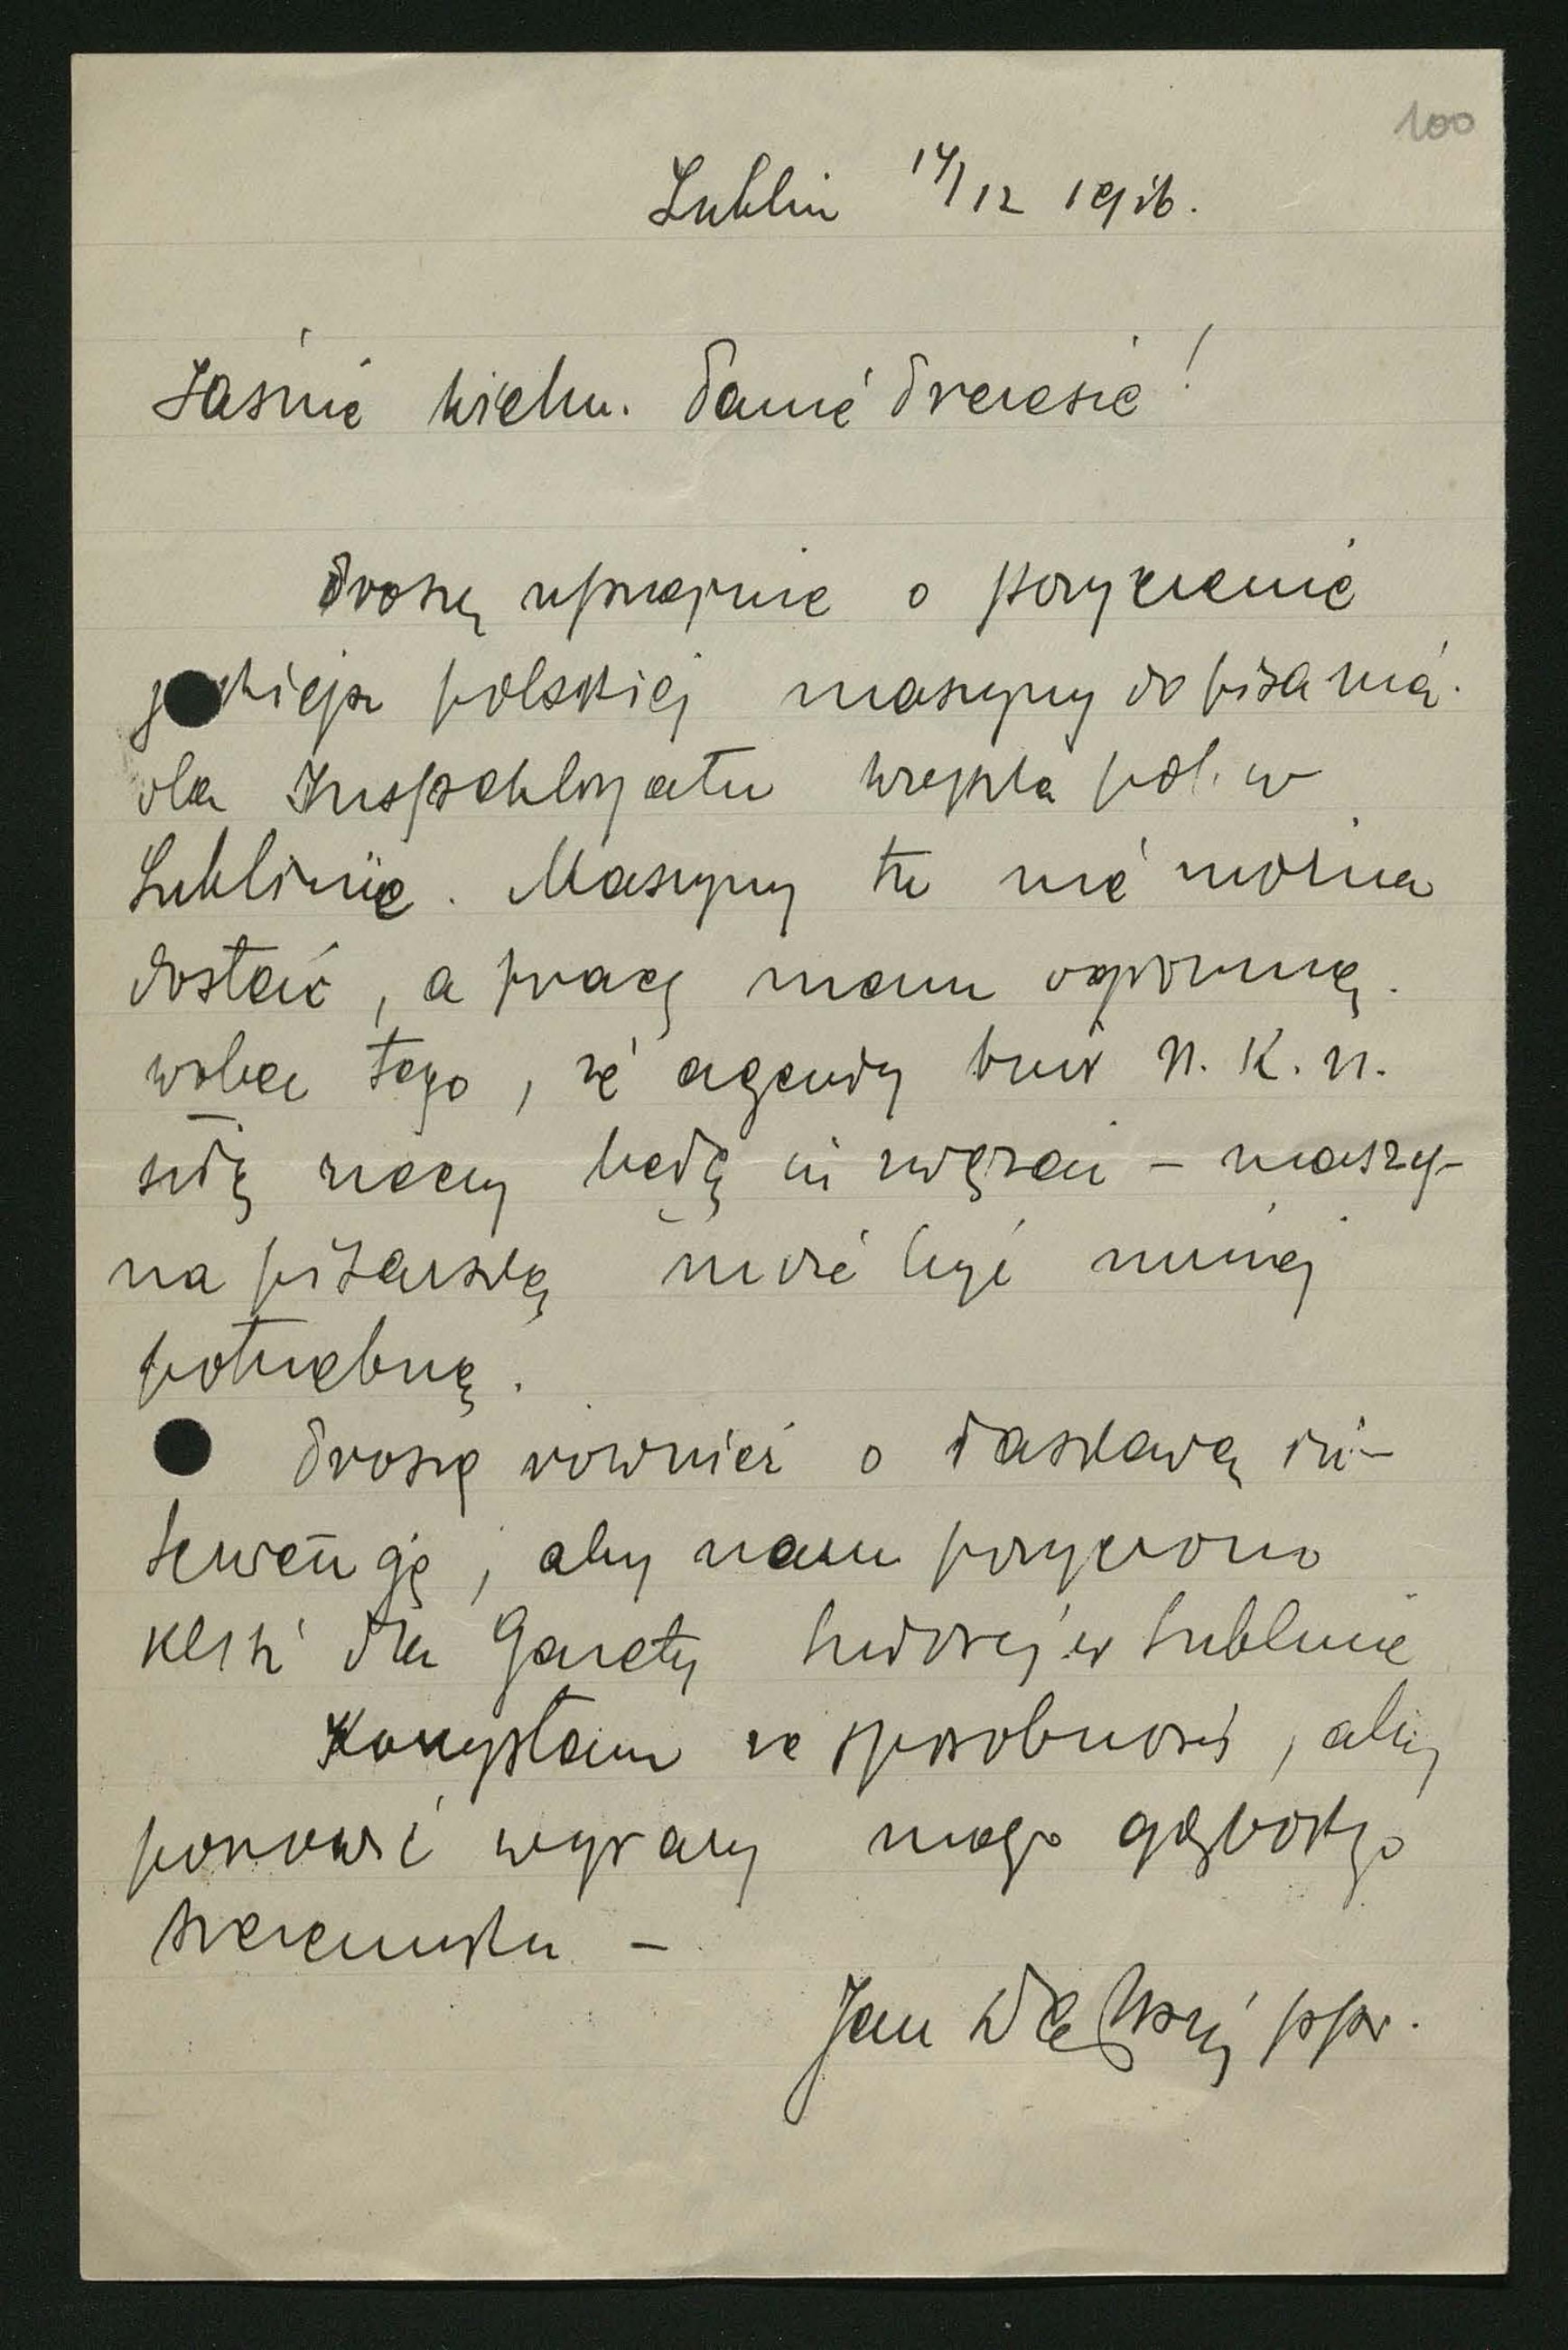 100
Lublin 14/12 1916.
Jaśnie Wielm. Panie Prezesie!
Proszę uprzejmie o pożyczenie
polskiej maszyny do pisania
dla Inspektoratu werb. pol. w
Lublinie. Maszyny tu nie można
dostać, a pracę mam ogromną.
wobec tego, że agendy biur N. K. N.
siłą rzeczy będą się zwężać – maszy-
na pisarska może być mniej
potrzebną.
Proszę również o łaskawą in-
terwencję, aby nam pożyczono
klisz dla Gazety Ludowej w Lublinie
Korzystam ze sposobności, aby
ponowić wyrazy mego głębokiego
szacunku –
Jan Dębski ppor.